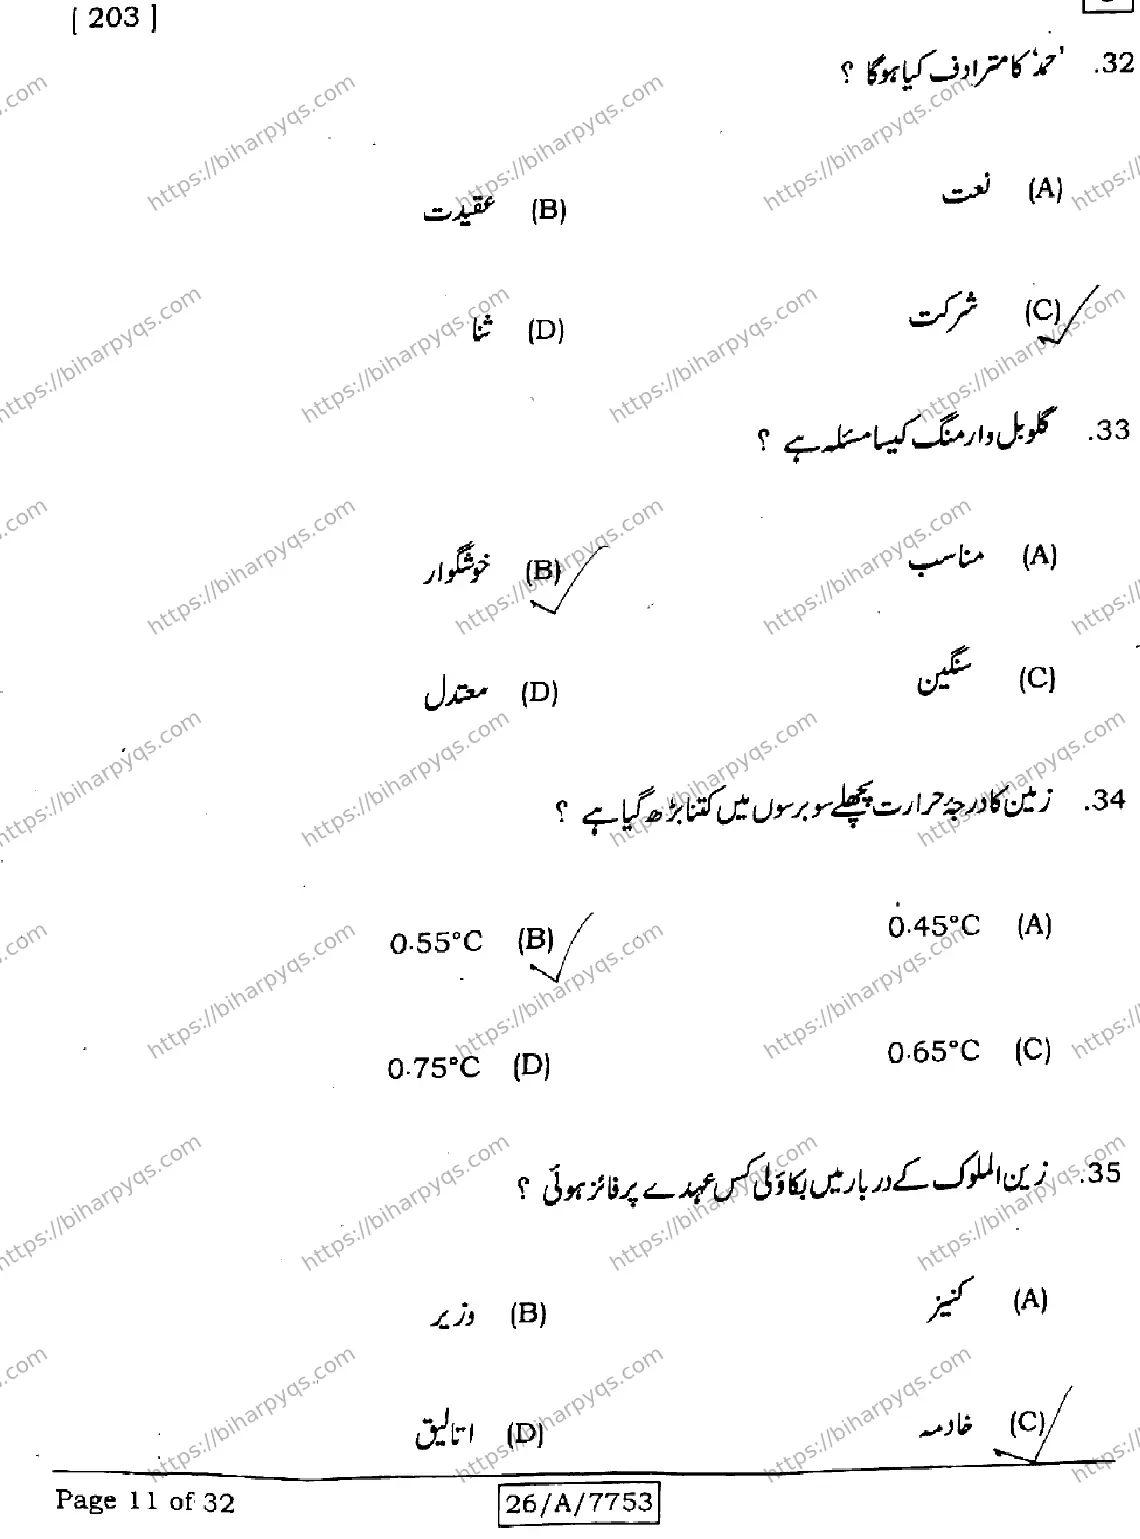 [ 203 ]
32. 'حمد' کا مترادف کیا ہوگا ؟
(A) نعت
(B) عقیدت
(C) شرکت
(D) ثنا
33. گلوبل وارمنگ کیسا مسئلہ ہے ؟
(A) مناسب
(B) خوشگوار
(C) سنگین
(D) معتدل
34. زمین کا درجۂ حرارت پچھلے سو برسوں میں کتنا بڑھ گیا ہے ؟
(A) 0.45°C
(B) 0.55°C
(C) 0.65°C
(D) 0.75°C
35. زین الملوک کے دربار میں بکاؤلی کس عہدے پر فائز ہوئی ؟
(A) کنیز
(B) وزیر
(C) خادمہ
(D) اتالیق
Page 11 of 32
26/A/7753
https://biharpyqs.com